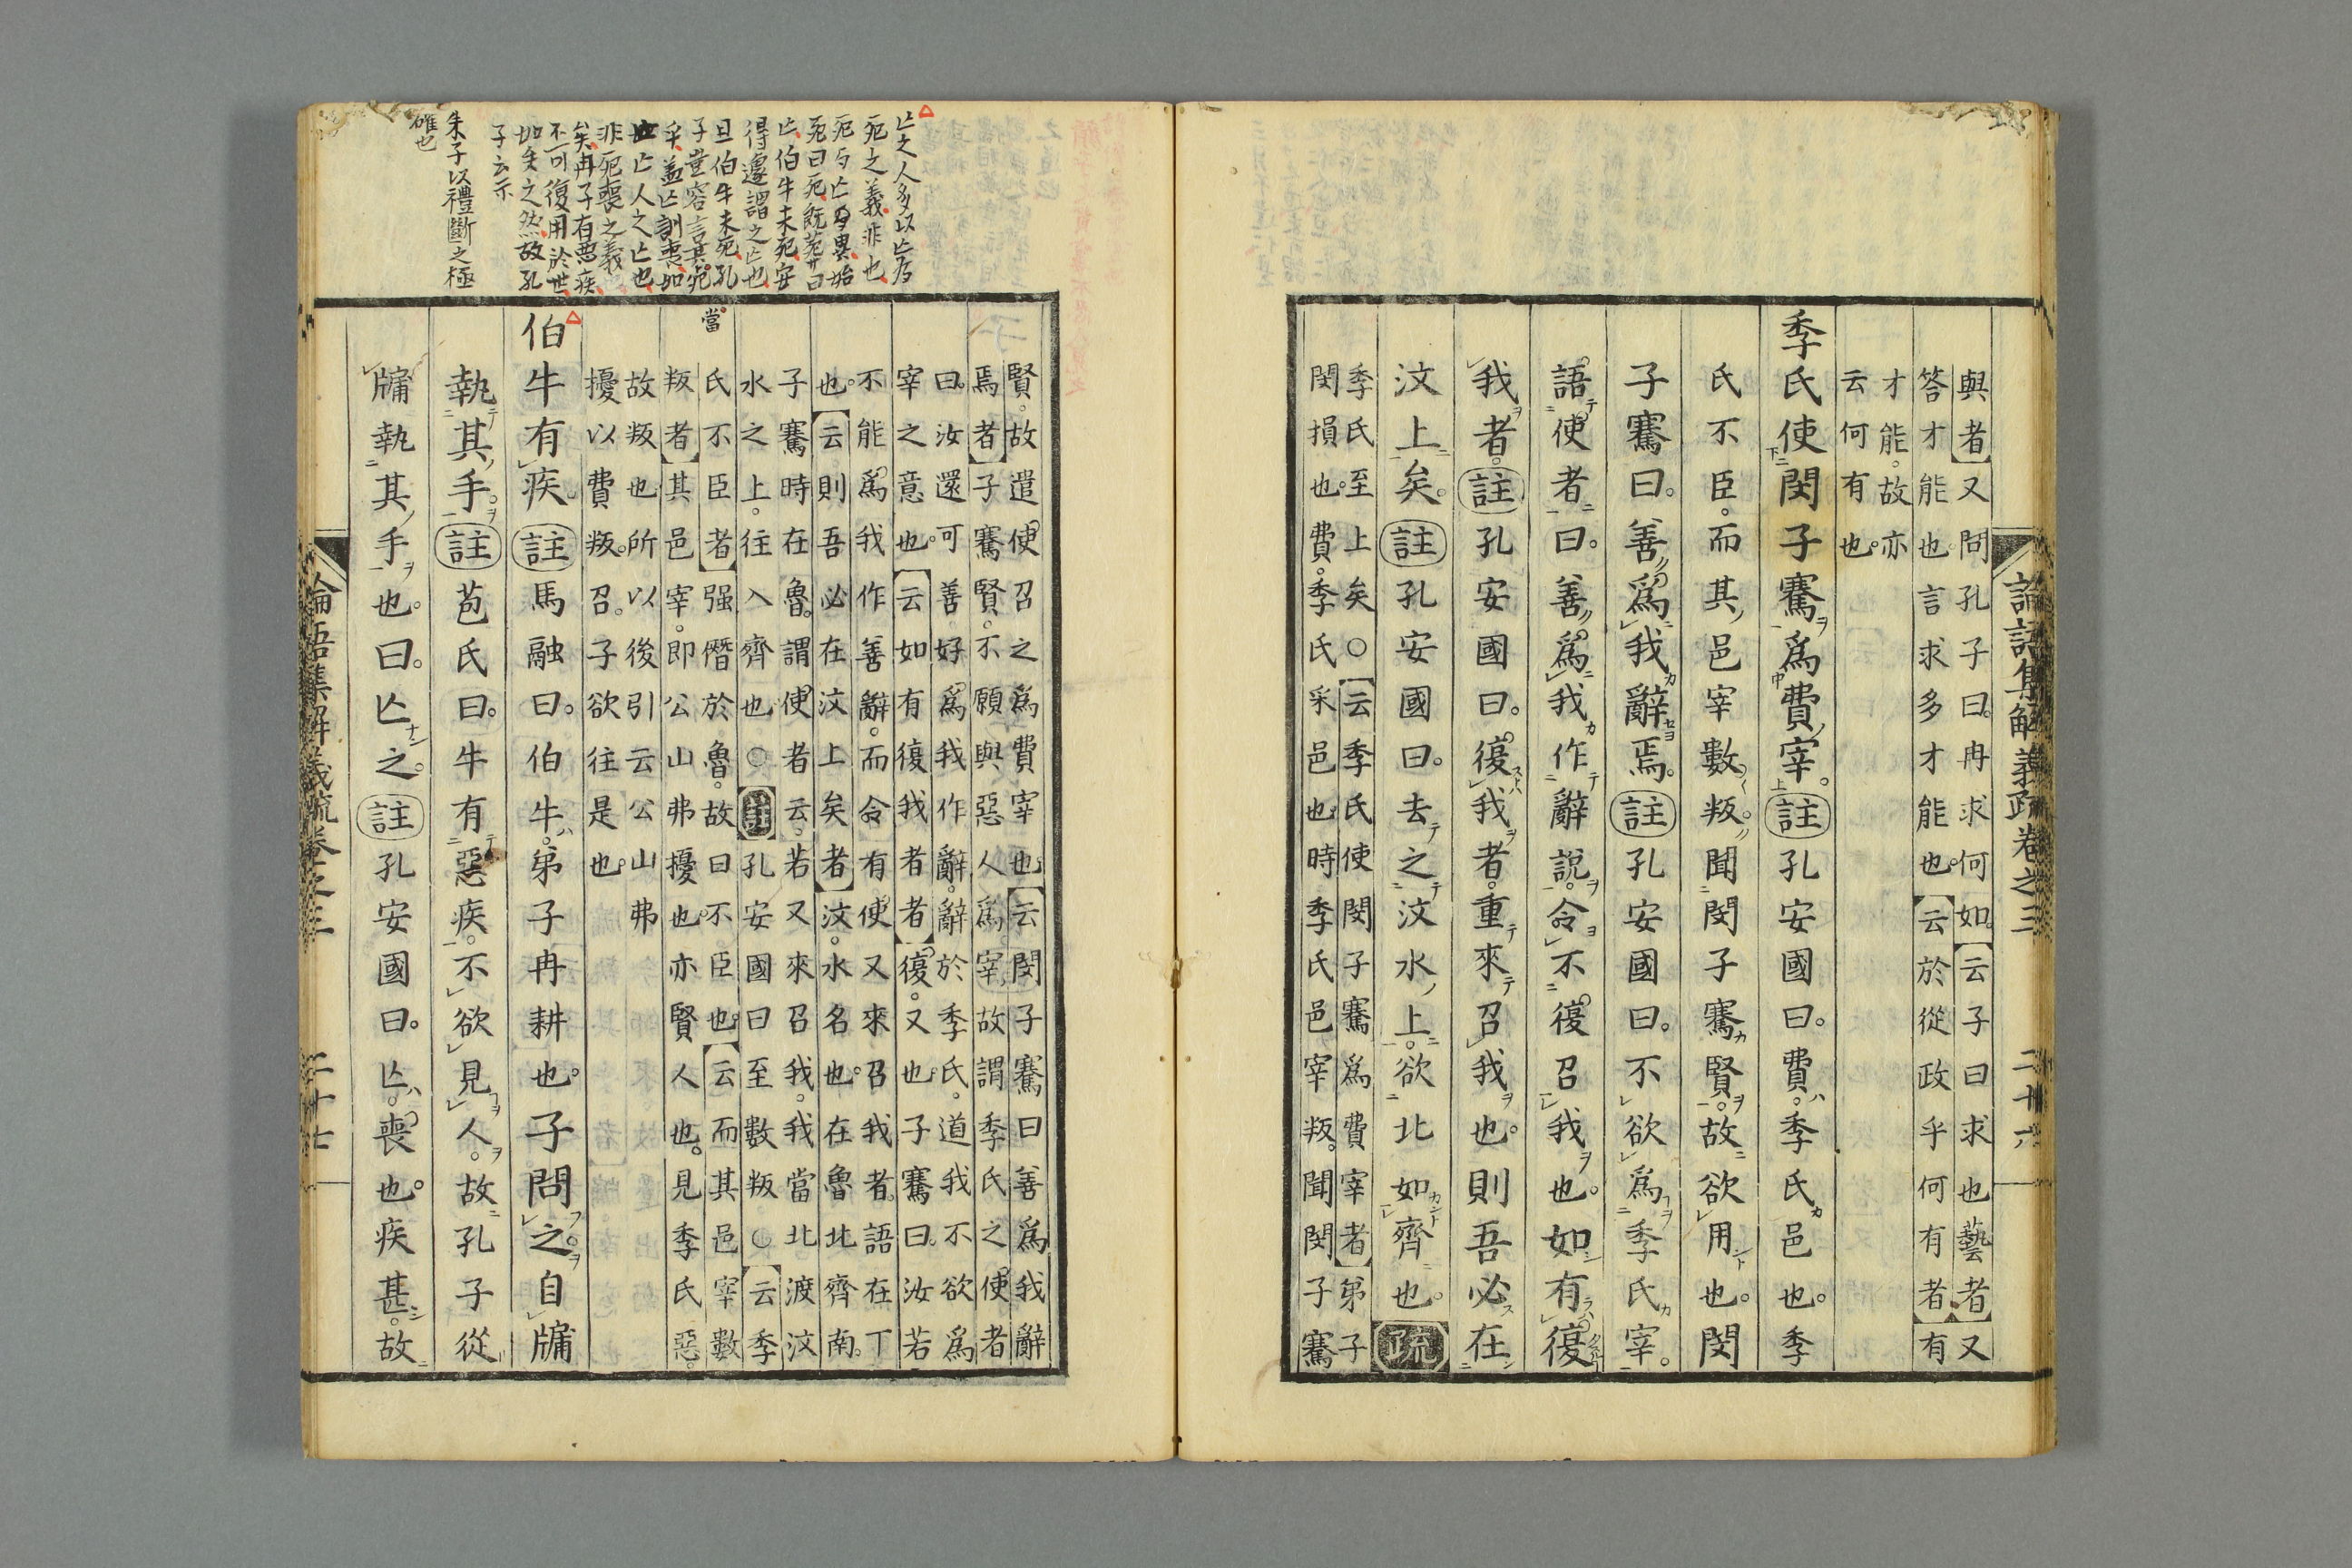 論語集解義疏卷之三 二十六
與者】又問孔子曰冉求何如【云子曰求也藝者】又
答才能也言求多才能也【云於從政乎何有者】有
才能故亦
云何有也
季氏使閔子騫爲費宰註孔安國曰費季氏邑也季
氏不臣而其邑宰數叛聞閔子騫賢故欲用也閔
子騫曰善爲我辭焉註孔安國曰不欲爲季氏宰
語使者曰善爲我作辭說令不復召我也如有復
我者註孔安國曰復我者重來召我也則吾必在
汶上矣註孔安國曰去之汶水上欲北如齊也疏
季氏至上矣○【云季氏使閔子騫爲費宰者】弟子
閔損也費季氏采邑也時季氏邑宰叛聞閔子騫
賢故遣使召之爲費宰也【云閔子騫曰善爲我辭
焉者】子騫賢不願與惡人爲宰故謂季氏之使者
曰汝還可善好爲我作辭辭於季氏道我不欲爲
宰之意也【云如有復我者者】復又也子騫曰汝若
不能爲我作善辭而令有使又來召我者語在下
也【云則吾必在汶上矣者】汶水名也在魯北齊南
子騫時在魯謂使者云若又來召我我當北渡汶
水之上往入齊也○註孔安國曰至數叛○【云季
氏不臣者】强僭於魯故曰不臣也【云而其邑宰數
叛者】其邑宰即公山弗擾也亦賢人也見季氏惡
故叛也所以後引云公山弗
擾以費叛召子欲往是也
伯牛有疾註馬融曰伯牛弟子冉耕也子問之自牖
執其手註苞氏曰牛有惡疾不欲見人故孔子從
牖執其手也曰亡之註孔安國曰亡喪也疾甚故
論語集解義疏卷之三 二十七
當
亡之人多以亡爲
死之義非也
死与亡自異始
死曰死既葬曰
亡伯牛未死安
得遽謂之亡也
且伯牛未死孔
子豈容言其死
乎盖亡訓喪如
亡人之亡也
非死喪之義
矣冉子有惡疾
不可復用於世
如失之然故孔
子云尓
朱子以禮斷之極
確也